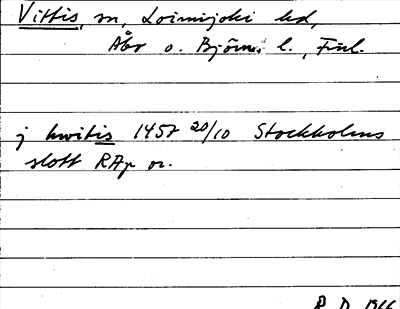 Vittis, sn, Loimijoki hd,
Åbo o. Björneb. l., Finl.
j hwitis 1457 20/10 Stockholms
slott RAp or.
R. D. 1966